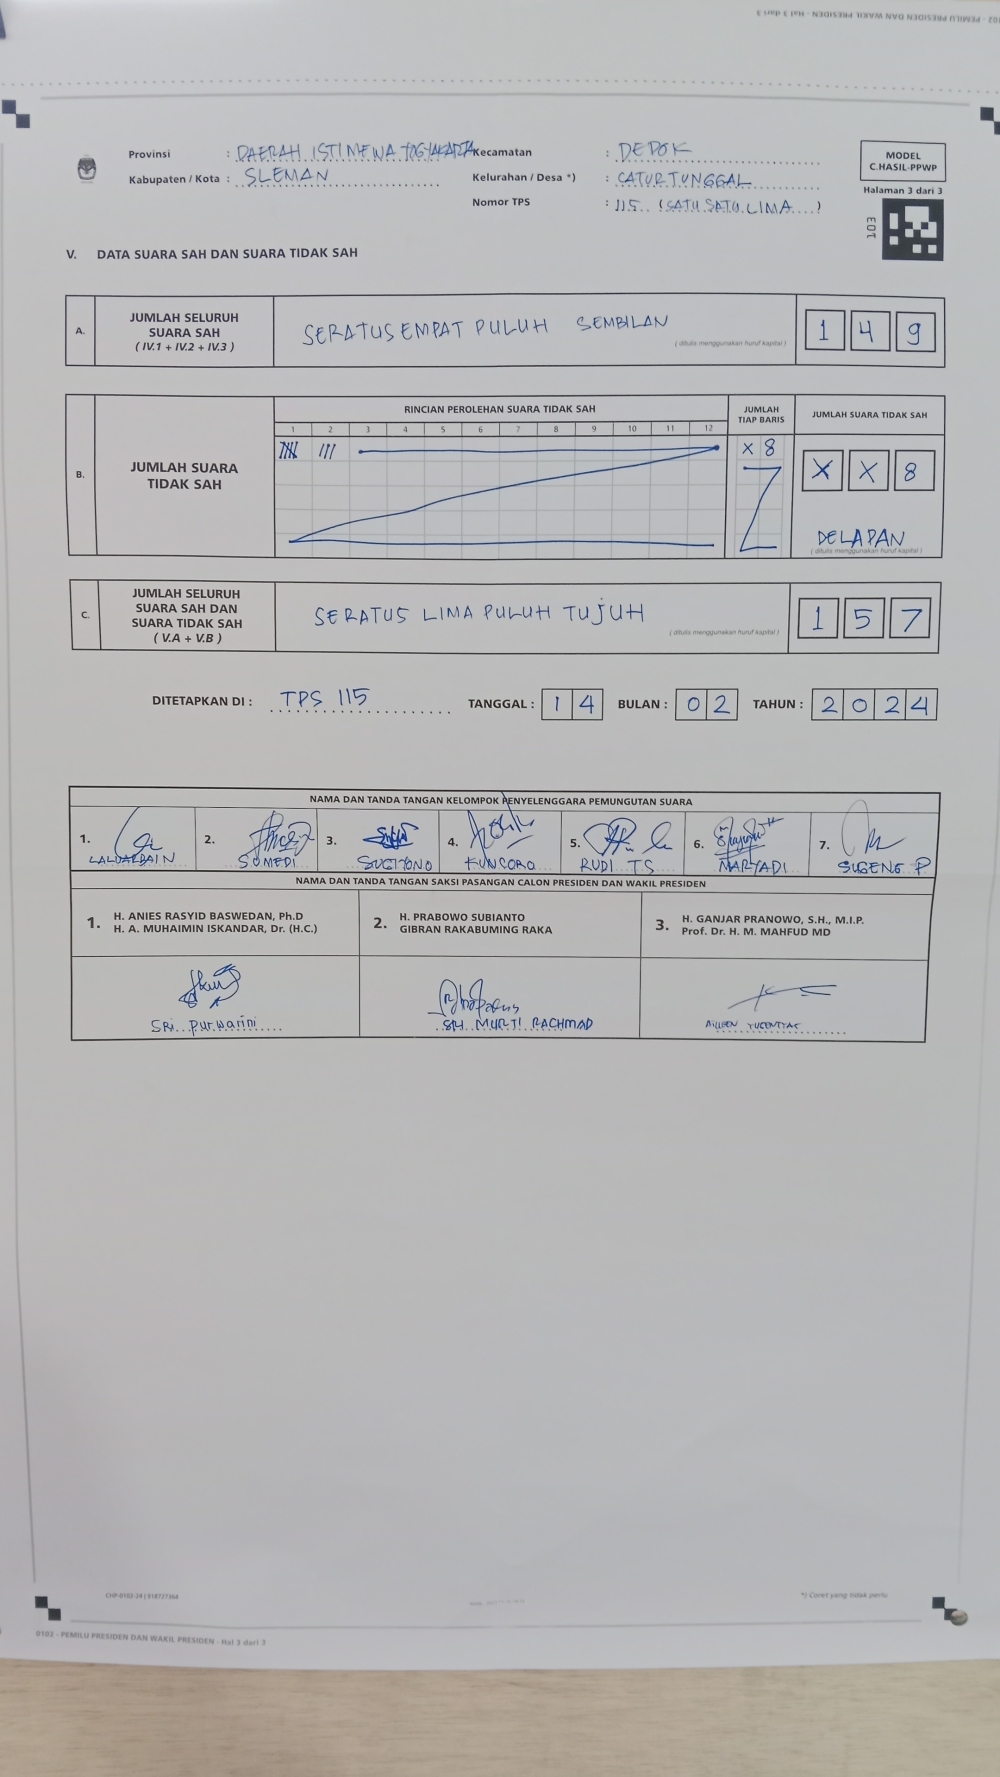 0102 - PEMILU PRESIDEN DAN WAKIL PRESIDEN - Hal 3 dari 3
Provinsi : DAERAH ISTIMEWA YOGYAKARTA Kecamatan : DEPOK
Kabupaten / Kota : SLEMAN Kelurahan / Desa *) : CATURTUNGGAL
Nomor TPS : 115 (SATU SATU LIMA)
MODEL
C.HASIL-PPWP
Halaman 3 dari 3
V. DATA SUARA SAH DAN SUARA TIDAK SAH
A. JUMLAH SELURUH
SUARA SAH
( IV.1 + IV.2 + IV.3 )
SERATUS EMPAT PULUH SEMBILAN
( ditulis menggunakan huruf kapital )
1 4 9
B. JUMLAH SUARA
TIDAK SAH
RINCIAN PEROLEHAN SUARA TIDAK SAH
1 2 3 4 5 6 7 8 9 10 11 12
JUMLAH
TIAP BARIS
X 8
JUMLAH SUARA TIDAK SAH
X X 8
DELAPAN
( ditulis menggunakan huruf kapital )
C. JUMLAH SELURUH
SUARA SAH DAN
SUARA TIDAK SAH
( V.A + V.B )
SERATUS LIMA PULUH TUJUH
( ditulis menggunakan huruf kapital )
1 5 7
DITETAPKAN DI : TPS 115 TANGGAL : 1 4 BULAN : 0 2 TAHUN : 2 0 2 4
NAMA DAN TANDA TANGAN KELOMPOK PENYELENGGARA PEMUNGUTAN SUARA
1. 2. 3. 4. 5. 6. 7.
SUMEDI SUGIYONO KUNCORO RUDI T.S MARYADI SUGENG P
NAMA DAN TANDA TANGAN SAKSI PASANGAN CALON PRESIDEN DAN WAKIL PRESIDEN
1. H. ANIES RASYID BASWEDAN, Ph.D
H. A. MUHAIMIN ISKANDAR, Dr. (H.C.)
2. H. PRABOWO SUBIANTO
GIBRAN RAKABUMING RAKA
3. H. GANJAR PRANOWO, S.H., M.I.P.
Prof. Dr. H. M. MAHFUD MD
SRI purwarini
SRI MURTI RACHMAD
*) Coret yang tidak perlu
0102 - PEMILU PRESIDEN DAN WAKIL PRESIDEN - Hal 3 dari 3